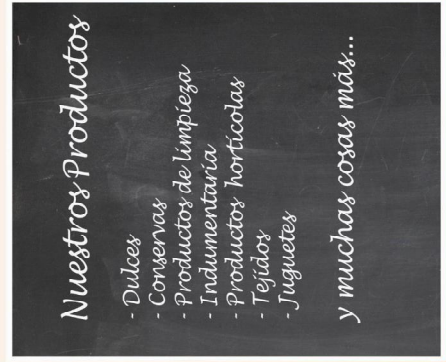 Nuestros Productos
- Dulces
- Conservas
- Productos de limpieza
- Indumentaria
- Productos hortícolas
- Tejidos
- Juguetes
y muchas cosas más...